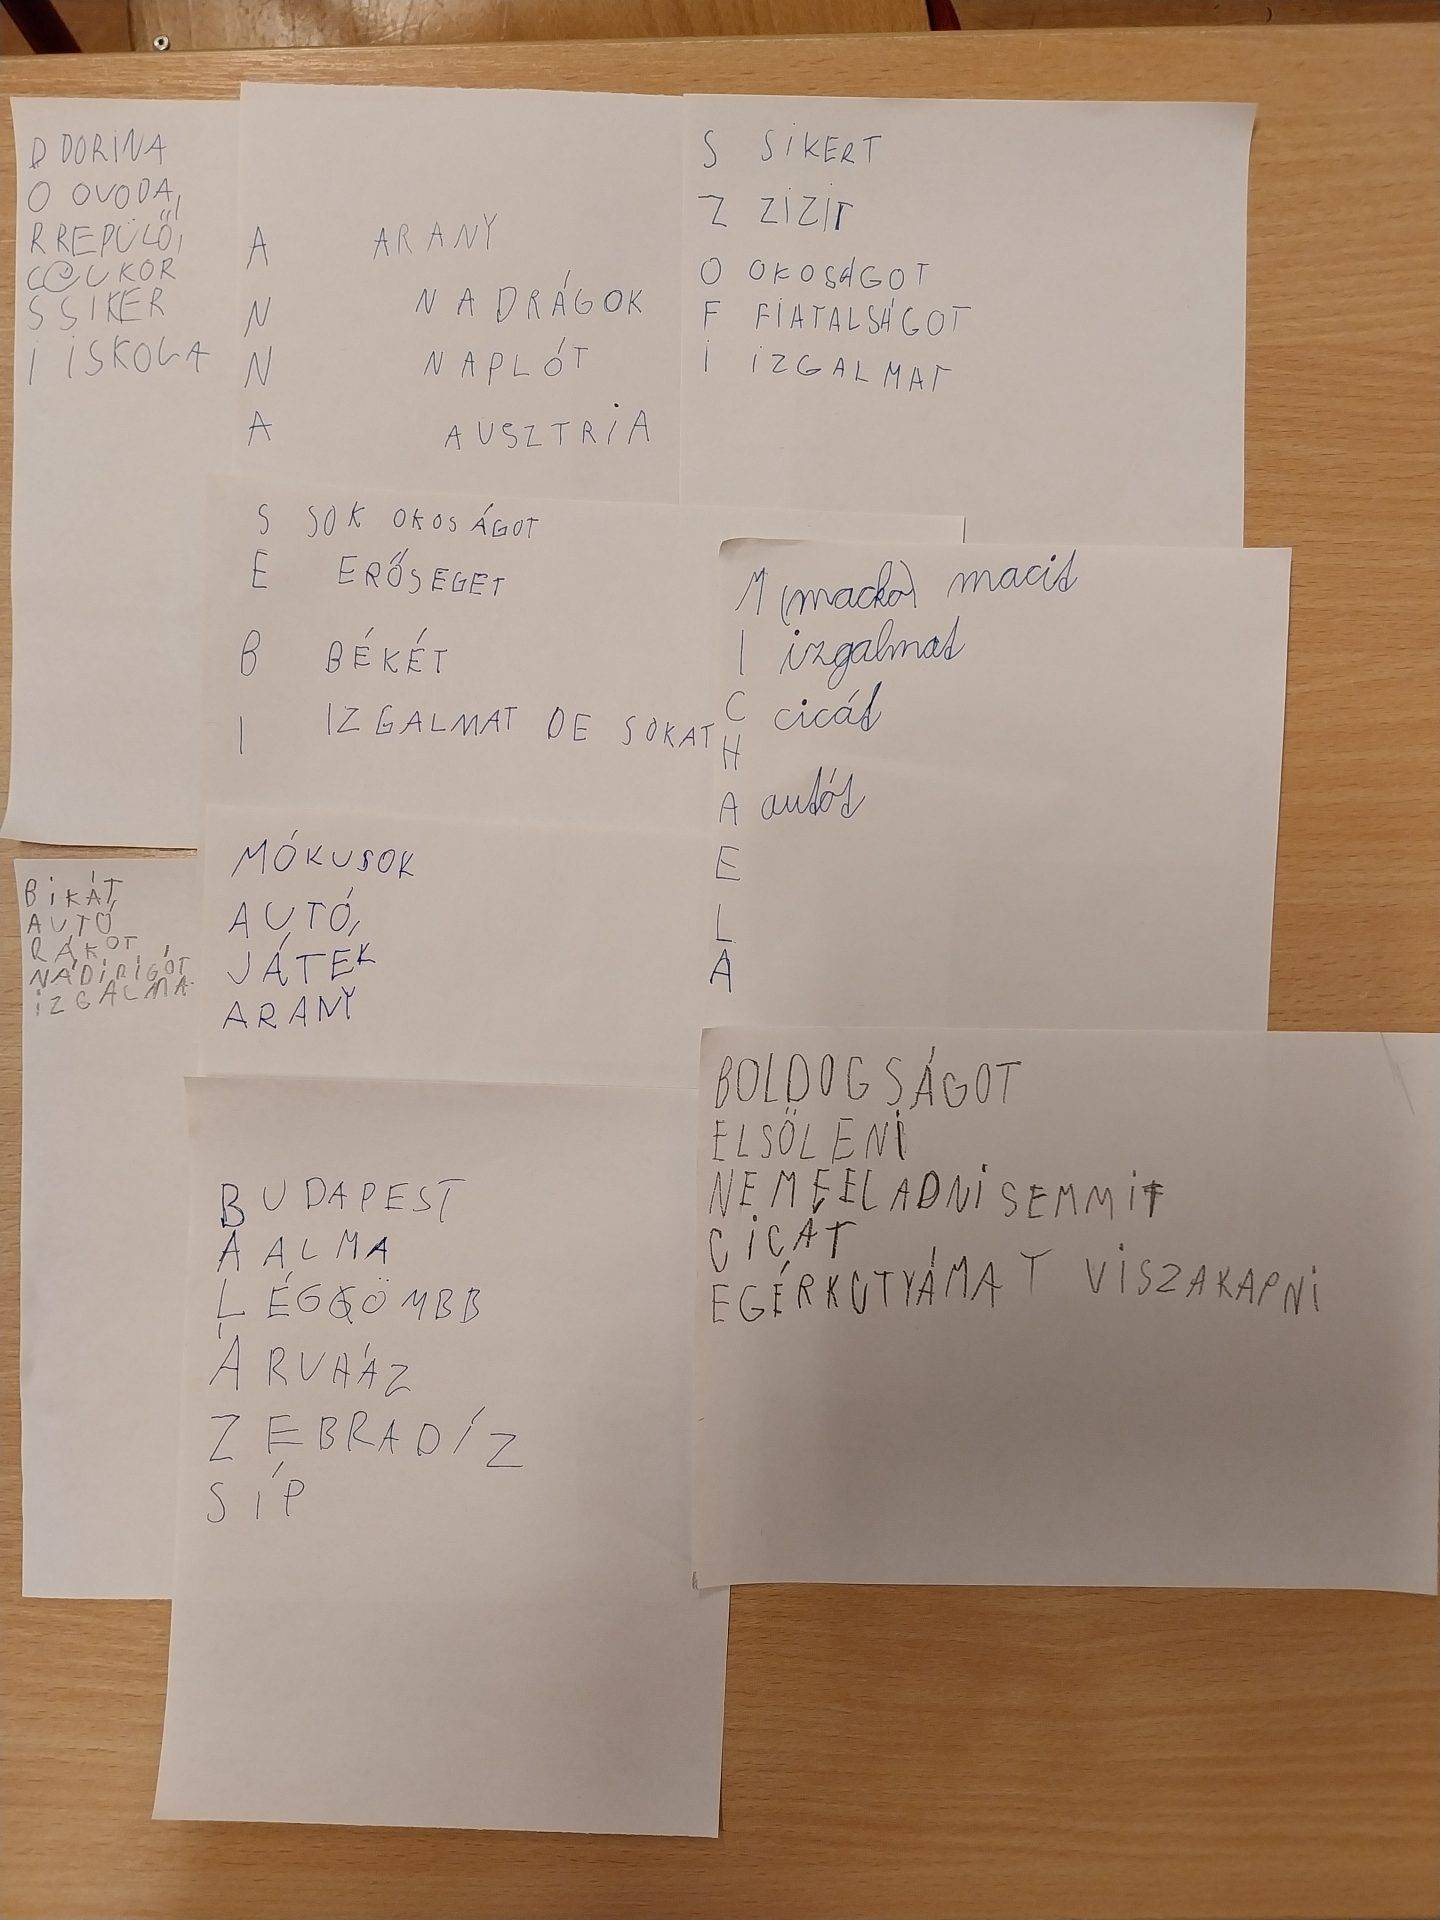 D DORINA
O OVODA,
R REPÜLŐ,
C CUKOR
S SIKER
I ISKOLA
A ARANY
N NADRÁGOK
N NAPLÓT
A AUSZTRIA
S SIKERT
Z ZIZIT
O OKOSÁGOT
F FIATALSÁGOT
I IZGALMAT
S SOK OKOSÁGOT
E ERŐSEGET
B BÉKÉT
I IZGALMAT DE SOKAT
M (macko) macit
I izgalmat
C cicát
H
A autót
E
L
A
BIKÁT,
AUTÓ
RÁKOT
NÁDIRIGÓT
IZGALMA
MÓKUSOK
AUTÓ,
JÁTÉK
ARANY
BOLDOGSÁGOT
ELSŐLENI
NEMFELADNI SEMMIT
CICÁT
EGÉRKUTYÁMAT VISZAKAPNI
BUDAPEST
A ALMA
LÉGGÖMBB
ÁRUHÁZ
ZEBRADÍZ
SÍP